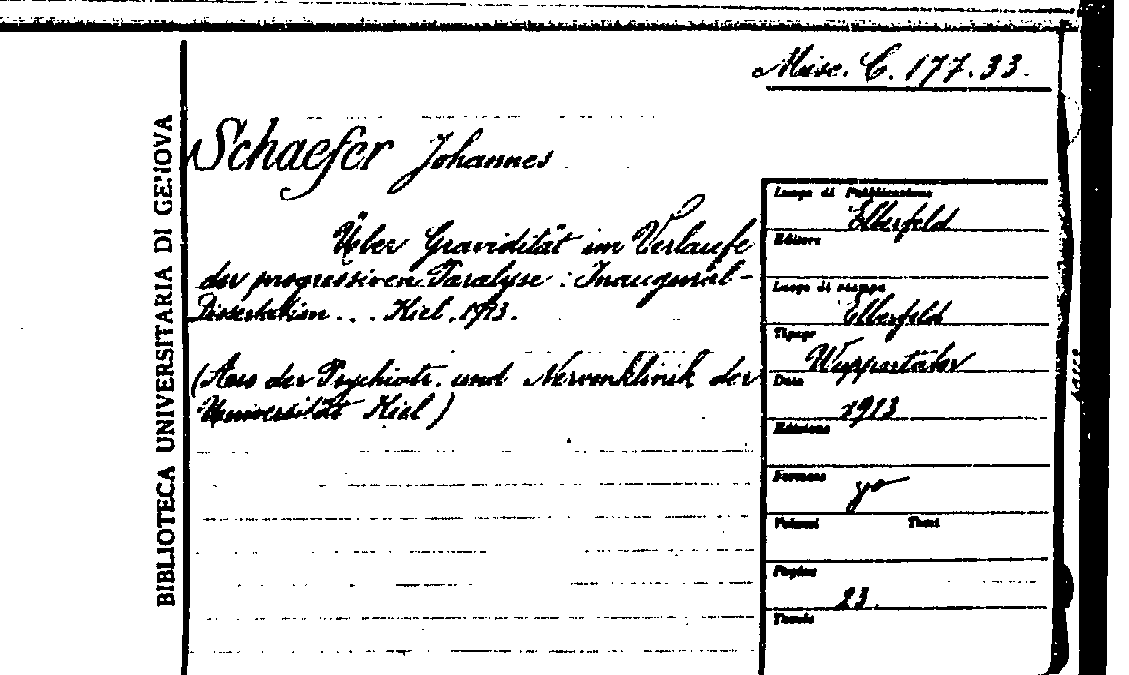 Misc. C. 177.33.
BIBLIOTECA UNIVERSITARIA DI GENOVA
Schaefer Johannes
Über Gravidität im Verlaufe
der progressiven Paralyse : Inaugural-
Dissertation . . . Kiel, 1913.
(Aus der Psychiatr. und Nervenklinik der
Universität Kiel)
Luogo di Pubblicazione
Elberfeld
Editore
Luogo di stampa
Elberfeld
Tipogr
Wuppertaler
Data
1913
Edizione
Formato
Volumi Tomi
Pagine
23.